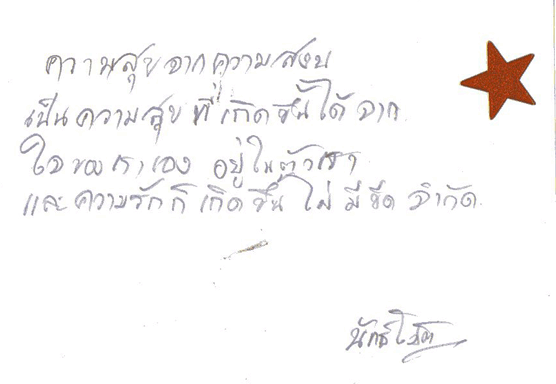 ความสุขจากความสงบ
เป็นความสุขที่เกิดขึ้นได้จาก
ใจของเราเอง อยู่ในตัวเรา
และความรักก็เกิดขึ้น ไม่มีขีดจำกัด